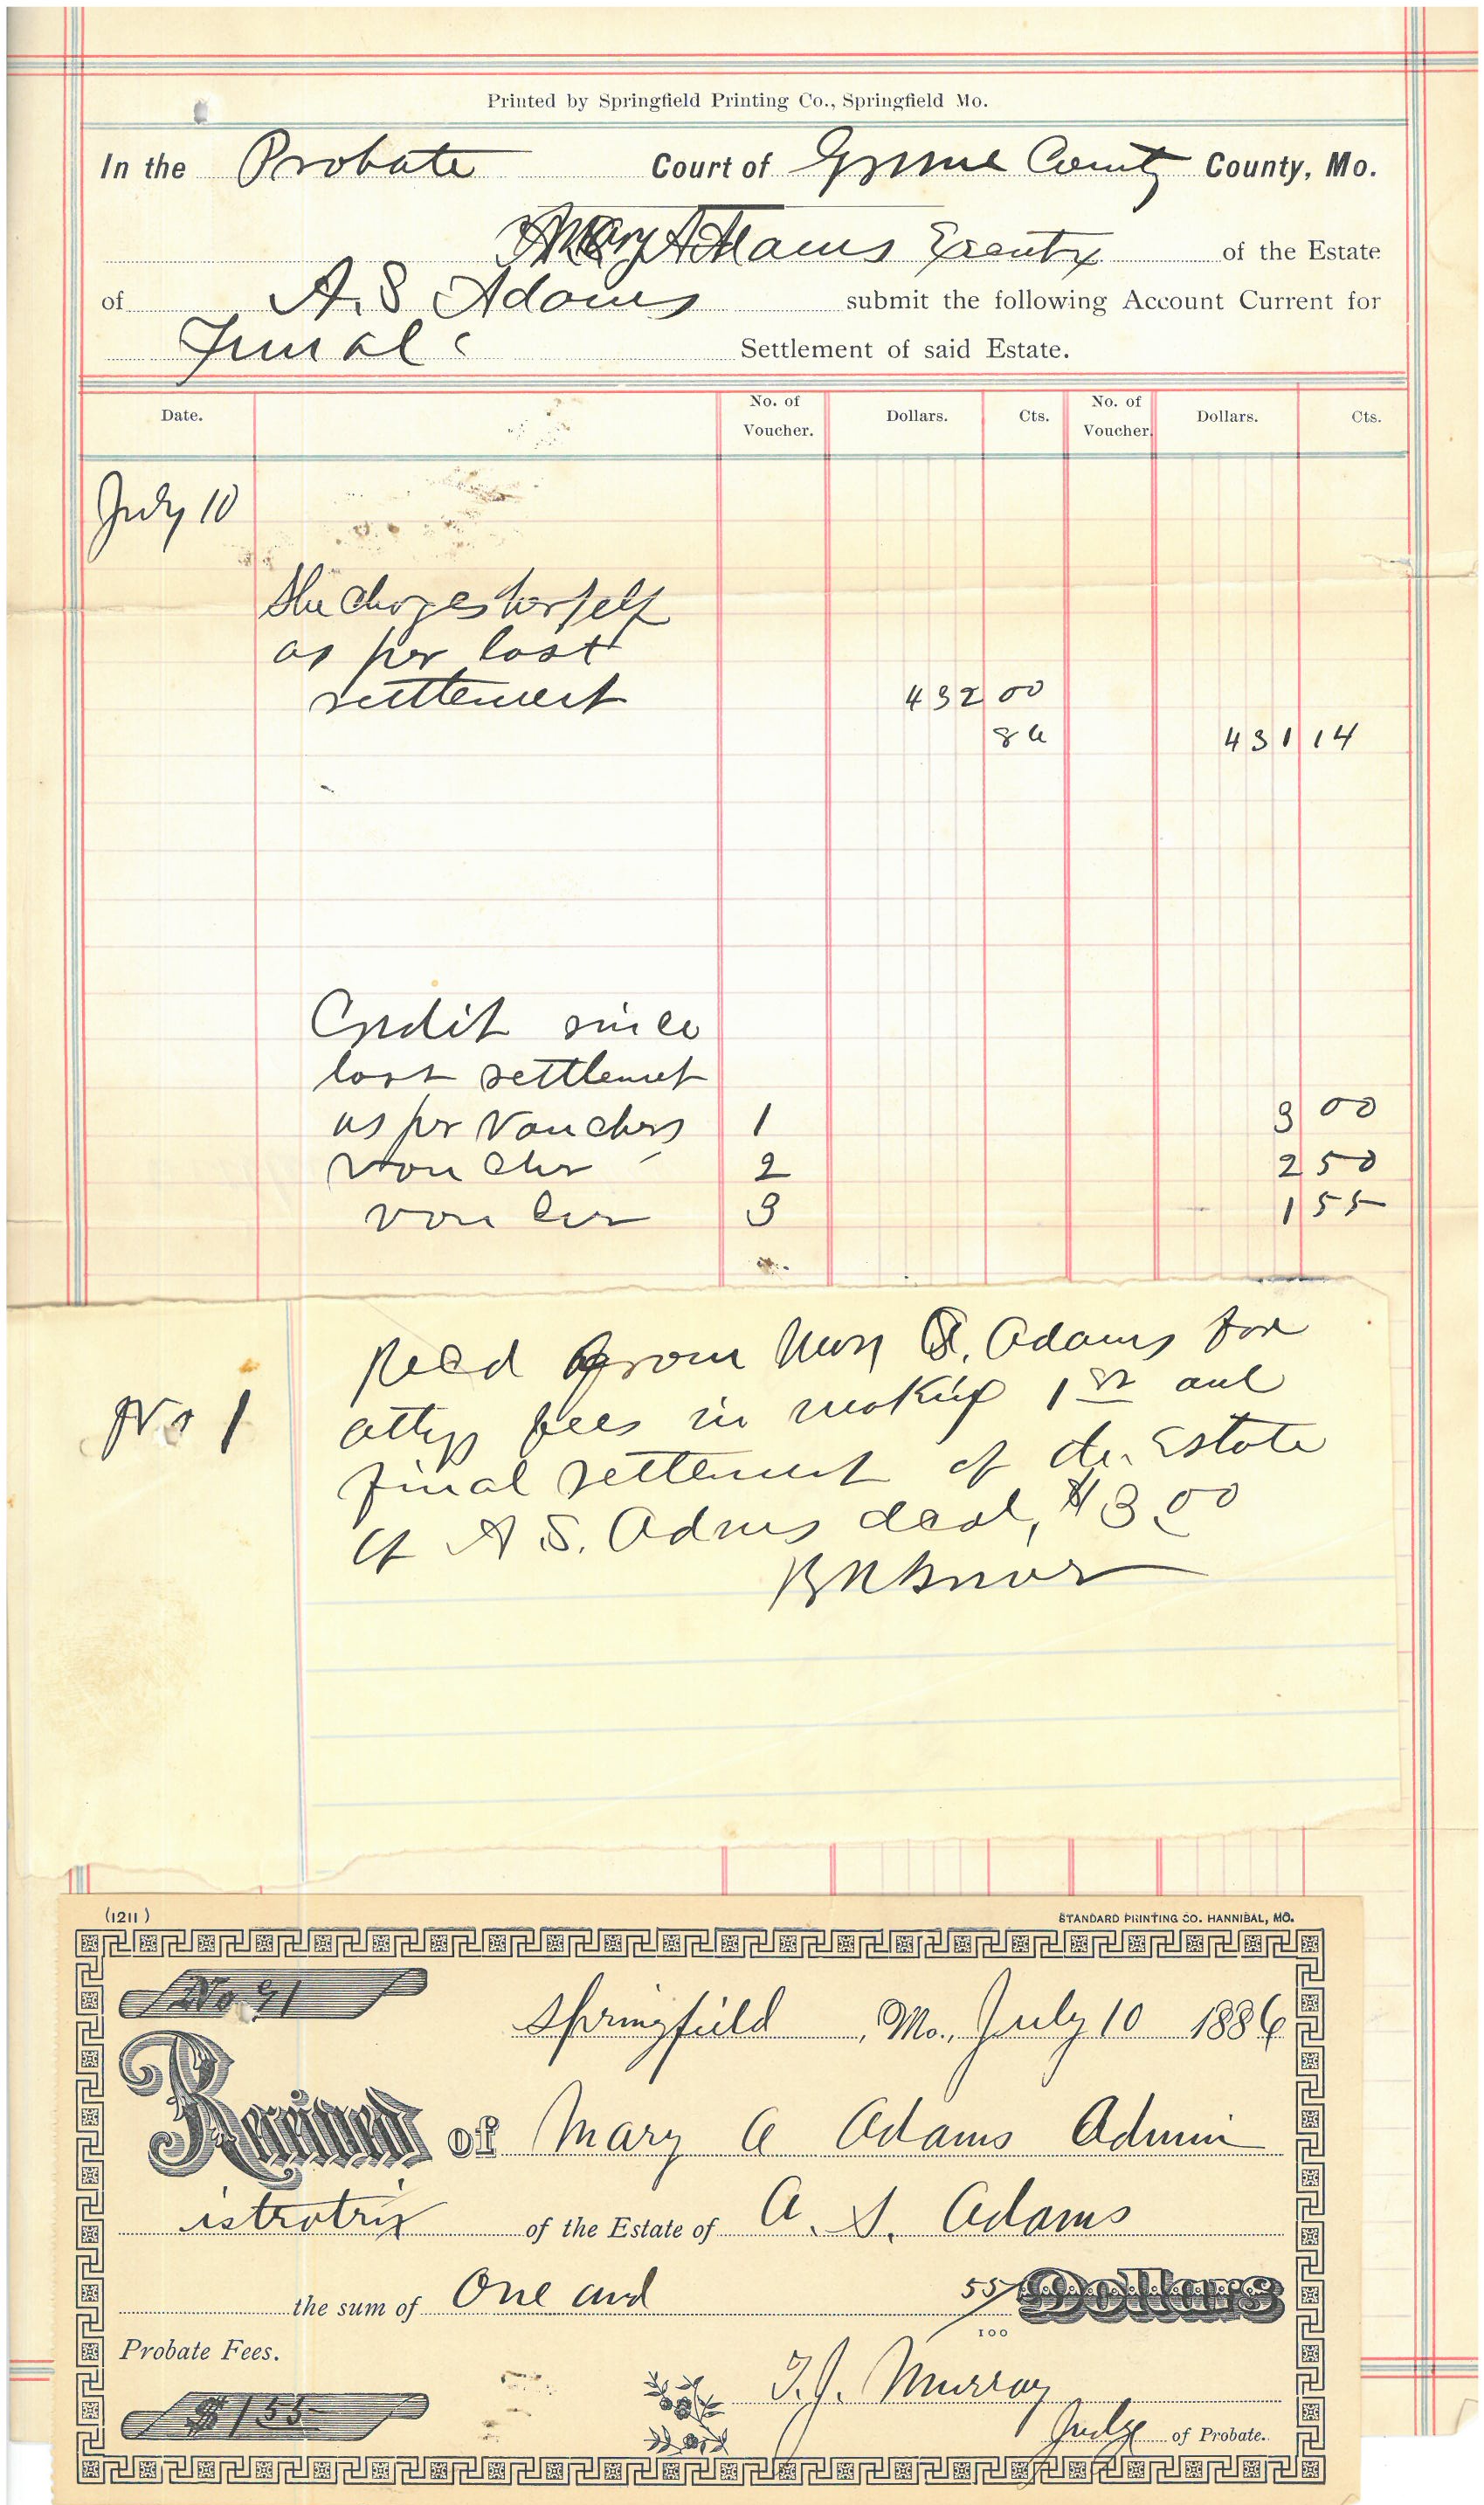 Printed by Springfield Printing Co., Springfield Mo.
In the Probate Court of Greene County County, Mo.
Mary A Adams Executx of the Estate
of A. S Adams submit the following Account Current for
Final Settlement of said Estate.
Date. No. of Voucher. Dollars. Cts. No. of Voucher. Dollars. Cts.
July 10
She charges herself
as per last
settlement 432 00
86 431 14
Credit since
last settlement
as per Vouchers 1 3 00
voucher 2 2 50
voucher 3 1 55
No 1
Recd from Mary A. Adams for
attys fees in making 1st and
final settlement of the Estate
of A. S. Adams decd, $3.00
(1211) STANDARD PRINTING CO. HANNIBAL, MO.
No 91
Springfield, Mo., July 10 1886
Received of Mary A Adams Admin
istratrix of the Estate of A. S. Adams
the sum of One and 55/100 Dollars
Probate Fees.
$1 55
T. J. Murray
Judge of Probate.